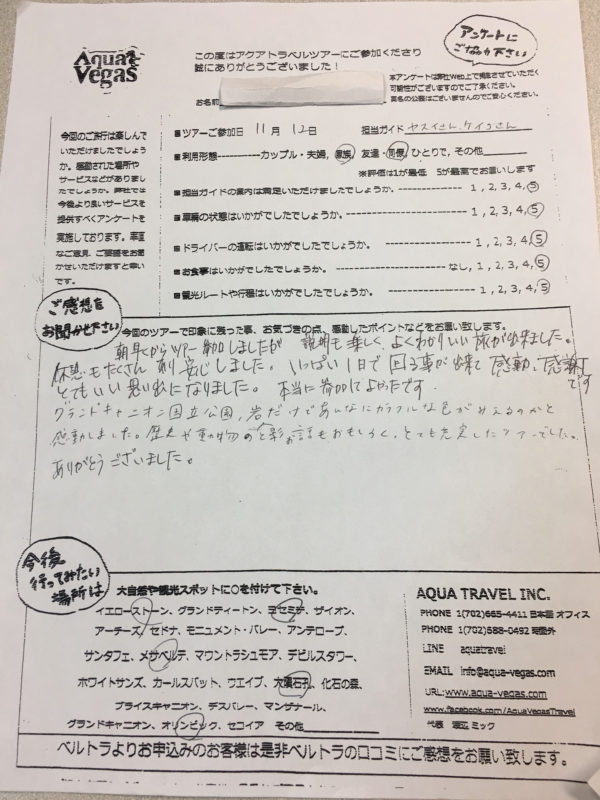 Aqua Vegas
この度はアクアトラベルツアーにご参加くださり
誠にありがとうございました！
アンケートに
ご協力下さい
本アンケートは弊社Web上で掲載させていただく
可能性がございますのでご了承ください。
実名の公表はございませんのでご安心ください。
お名前
今回のご旅行は楽しんで
いただけましたでしょう
か。感動された場所や
サービスなどがありまし
たでしょうか。弊社では
今後より良いサービスを
提供すべくアンケートを
実施しております。率直
なご意見、ご要望をお聞
かせいただけますと幸い
です。
■ツアーご参加日 11月 12日 担当ガイド ヤスイさん、ケイコさん
■利用形態-----------カップル・夫婦, 家族, 友達・同僚, ひとりで, その他
※評価は1が最低 5が最高でお願いします
■担当ガイドの案内は満足いただけましたでしょうか。------------------ 1, 2, 3, 4, 5
■車輌の状態はいかがでしたでしょうか。------------------ 1, 2, 3, 4, 5
■ドライバーの運転はいかがでしたでしょうか。------------------ 1, 2, 3, 4, 5
■お食事はいかがでしたでしょうか。------------------ なし, 1, 2, 3, 4, 5
■観光ルートや行程はいかがでしたでしょうか。------------------ 1, 2, 3, 4, 5
ご感想を
お聞かせ下さい
今回のツアーで印象に残った事、お気づきの点、感動したポイントなどをお願い致します。
朝早くからツアー参加しましたが 説明も楽しく、よくわかりいい旅が出来ました。
休憩もたくさんあり安心しました。いっぱい1日で回る事が出来て感動、感謝です
とてもいい思い出になりました。 本当に参加してよかったです。
グランドキャニオン国立公園、岩だけであんなにカラフルな色がみえるのかと
感動しました。歴史や動物のお話もおもしろく、とても充実したツアーでした。
ありがとうございました。
今後
行ってみたい
場所は
大自然や観光スポットに○を付けて下さい。
イエローストーン、グランドティートン、ヨセミテ、ザイオン、
アーチーズ、セドナ、モニュメント・バレー、アンテロープ、
サンタフェ、メサベルデ、マウントラシュモア、デビルスタワー、
ホワイトサンズ、カールスバット、ウエイブ、大隕石孔、化石の森、
ブライスキャニオン、デスバレー、マンザナール、
グランドキャニオン、オリンピック、セコイア その他
AQUA TRAVEL INC.
PHONE 1(702)665-4411 日本語オフィス
PHONE 1(702)588-0492 時間外
LINE aquatravel
EMAIL info@aqua-vegas.com
URL:www.aqua-vegas.com
www.facebook.com/AquaVegasTravel
代表 渡辺 ミック
ベルトラよりお申込みのお客様は是非ベルトラの口コミにご感想をお願い致します。